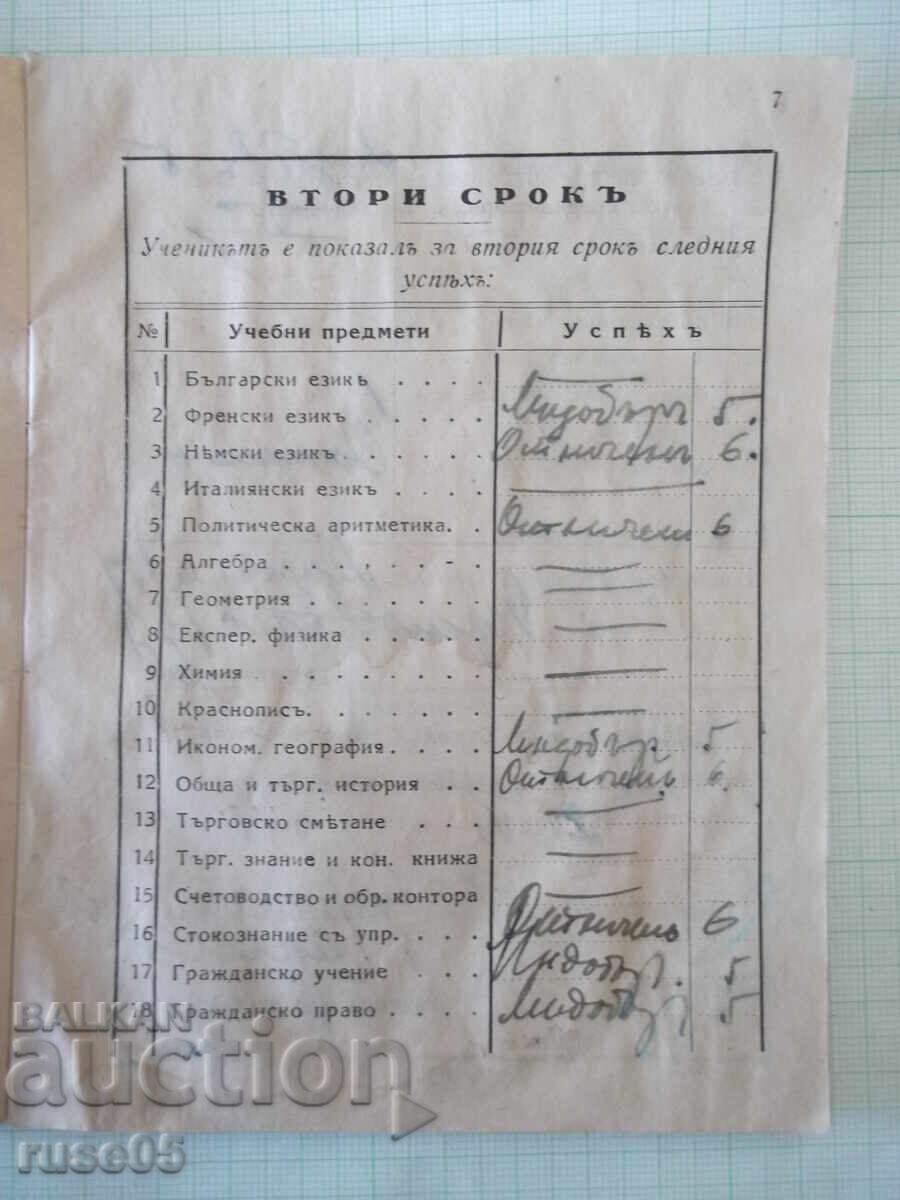 7
ВТОРИ СРОКЪ
Ученикътъ е показалъ за втория срокъ следния
успѣхъ:
№ Учебни предмети Успѣхъ
1 Български езикъ . . . .
2 Френски езикъ . . . . . Мн. добъръ 5.
3 Нѣмски езикъ . . . . . . Отличенъ 6.
4 Италиянски езикъ . . . .
5 Политическа аритметика. . Отличенъ 6
6 Алгебра . . . . . . -
7 Геометрия . . . . . . .
8 Експер. физика . . . . .
9 Химия . . . . . . . . .
10 Краснописъ. . . . . . .
11 Иконом. география. . . . Мн. добър 5
12 Обща и търг. история . . Отличенъ 6.
13 Търговско смѣтане . . .
14 Търг. знание и кон. книжа
15 Счетоводство и обр. контора
16 Стокознание съ упр. . . . Отличенъ 6
17 Гражданско учение . . . . 5
18 Гражданско право . . . . 5
BALKAN
auction
ruse05